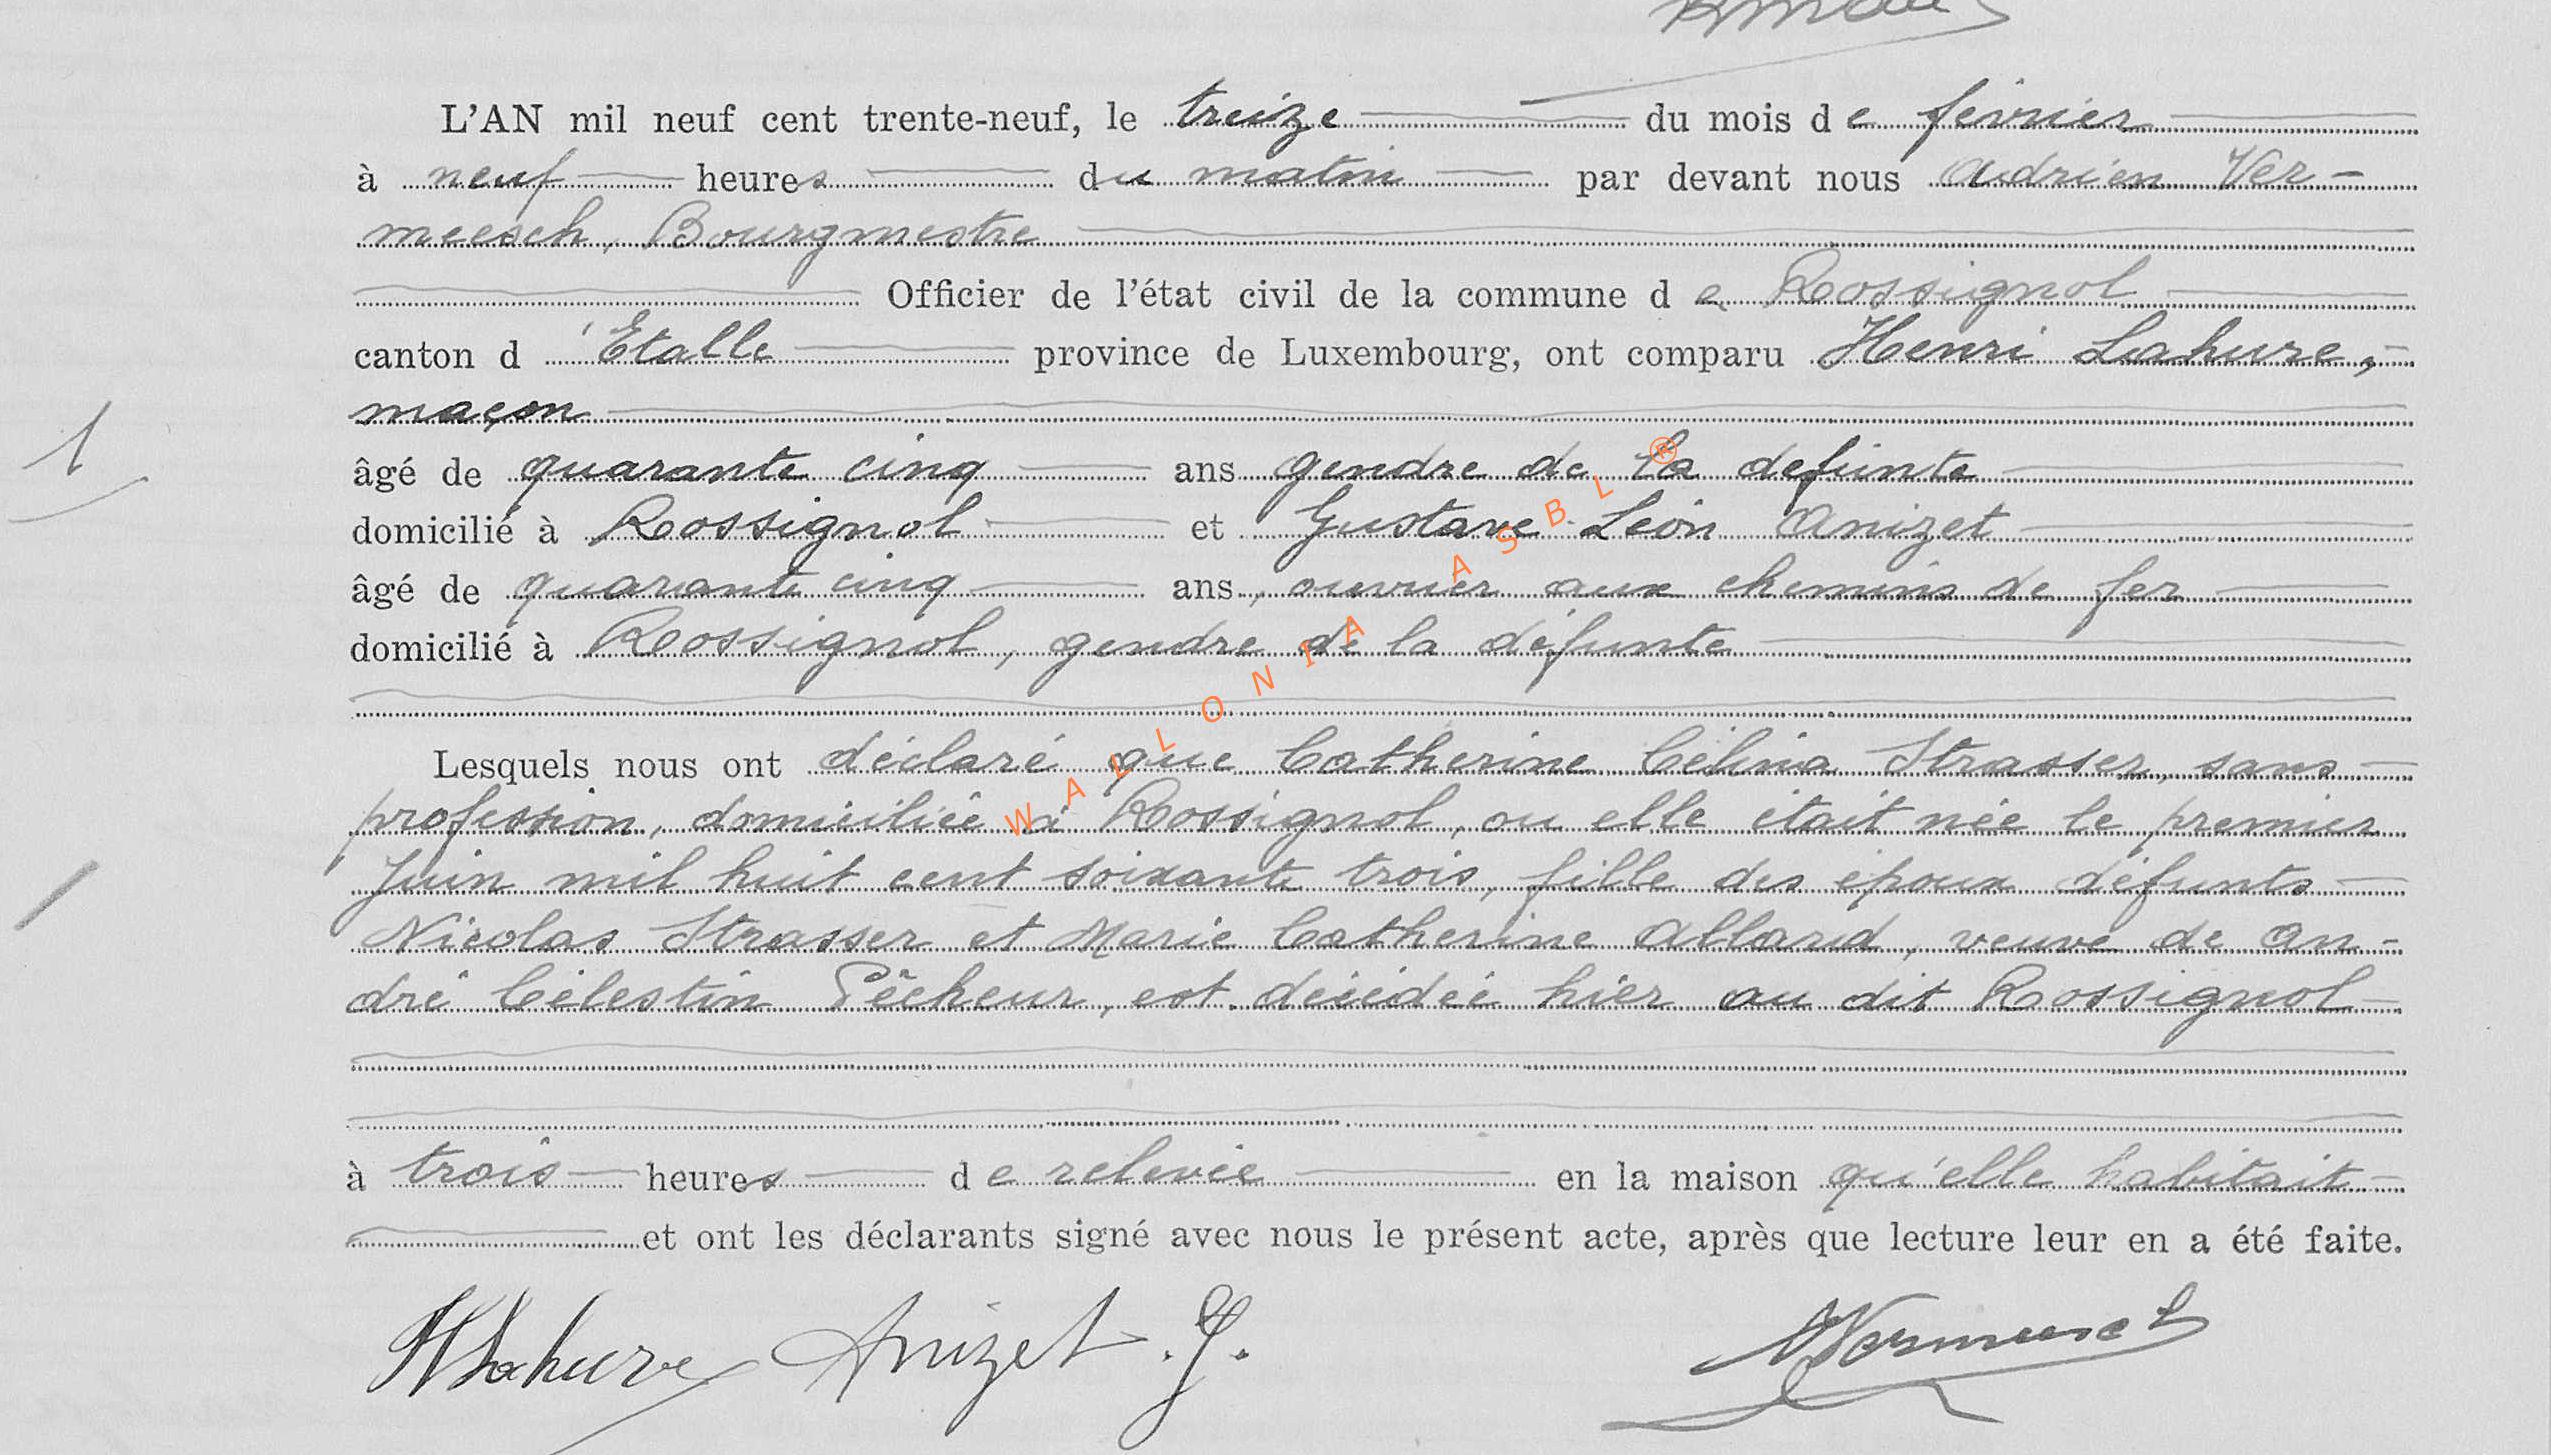 L'AN mil neuf cent trente-neuf, le treize du mois de février
à neuf heures du matin par devant nous Adrien Ver-
meesch, Bourgmestre
Officier de l'état civil de la commune de Rossignol
canton d'Etalle province de Luxembourg, ont comparu Henri Lahure,
maçon
âgé de quarante cinq ans gendre de la defunte
domicilié à Rossignol et Gustave Léon Anizet
âgé de quarante cinq ans, ouvrier aux chemins de fer
domicilié à Rossignol, gendre de la défunte
Lesquels nous ont déclaré que Catherine Célina Strasser, sans
profession, domiciliée à Rossignol, ou elle était née le premier
Juin mil huit cent soixante trois, fille des époux défunts
Nicolas Strasser et Marie Catherine Allard, veuve de An-
dré Célestin Pêcheur, est décédée hier au dit Rossignol
à trois heures de relevée en la maison qu'elle habitait
et ont les déclarants signé avec nous le présent acte, après que lecture leur en a été faite.
HLahure Anizet . G. AVermeesch
1
WALLONIA ASBL ®